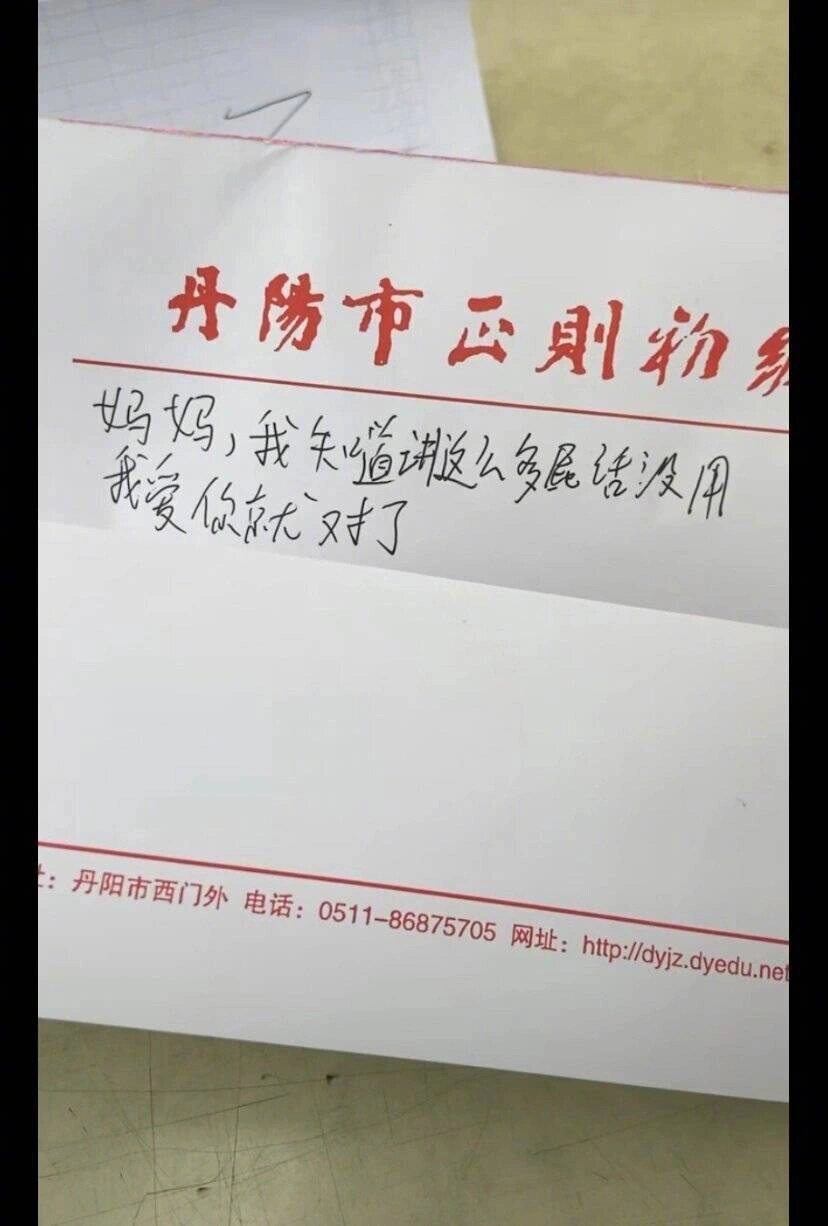 丹陽市正則初級
妈妈，我知道讲这么多屁话没用
我爱你就对了
址：丹阳市西门外 电话：0511-86875705 网址：http://dyjz.dyedu.net